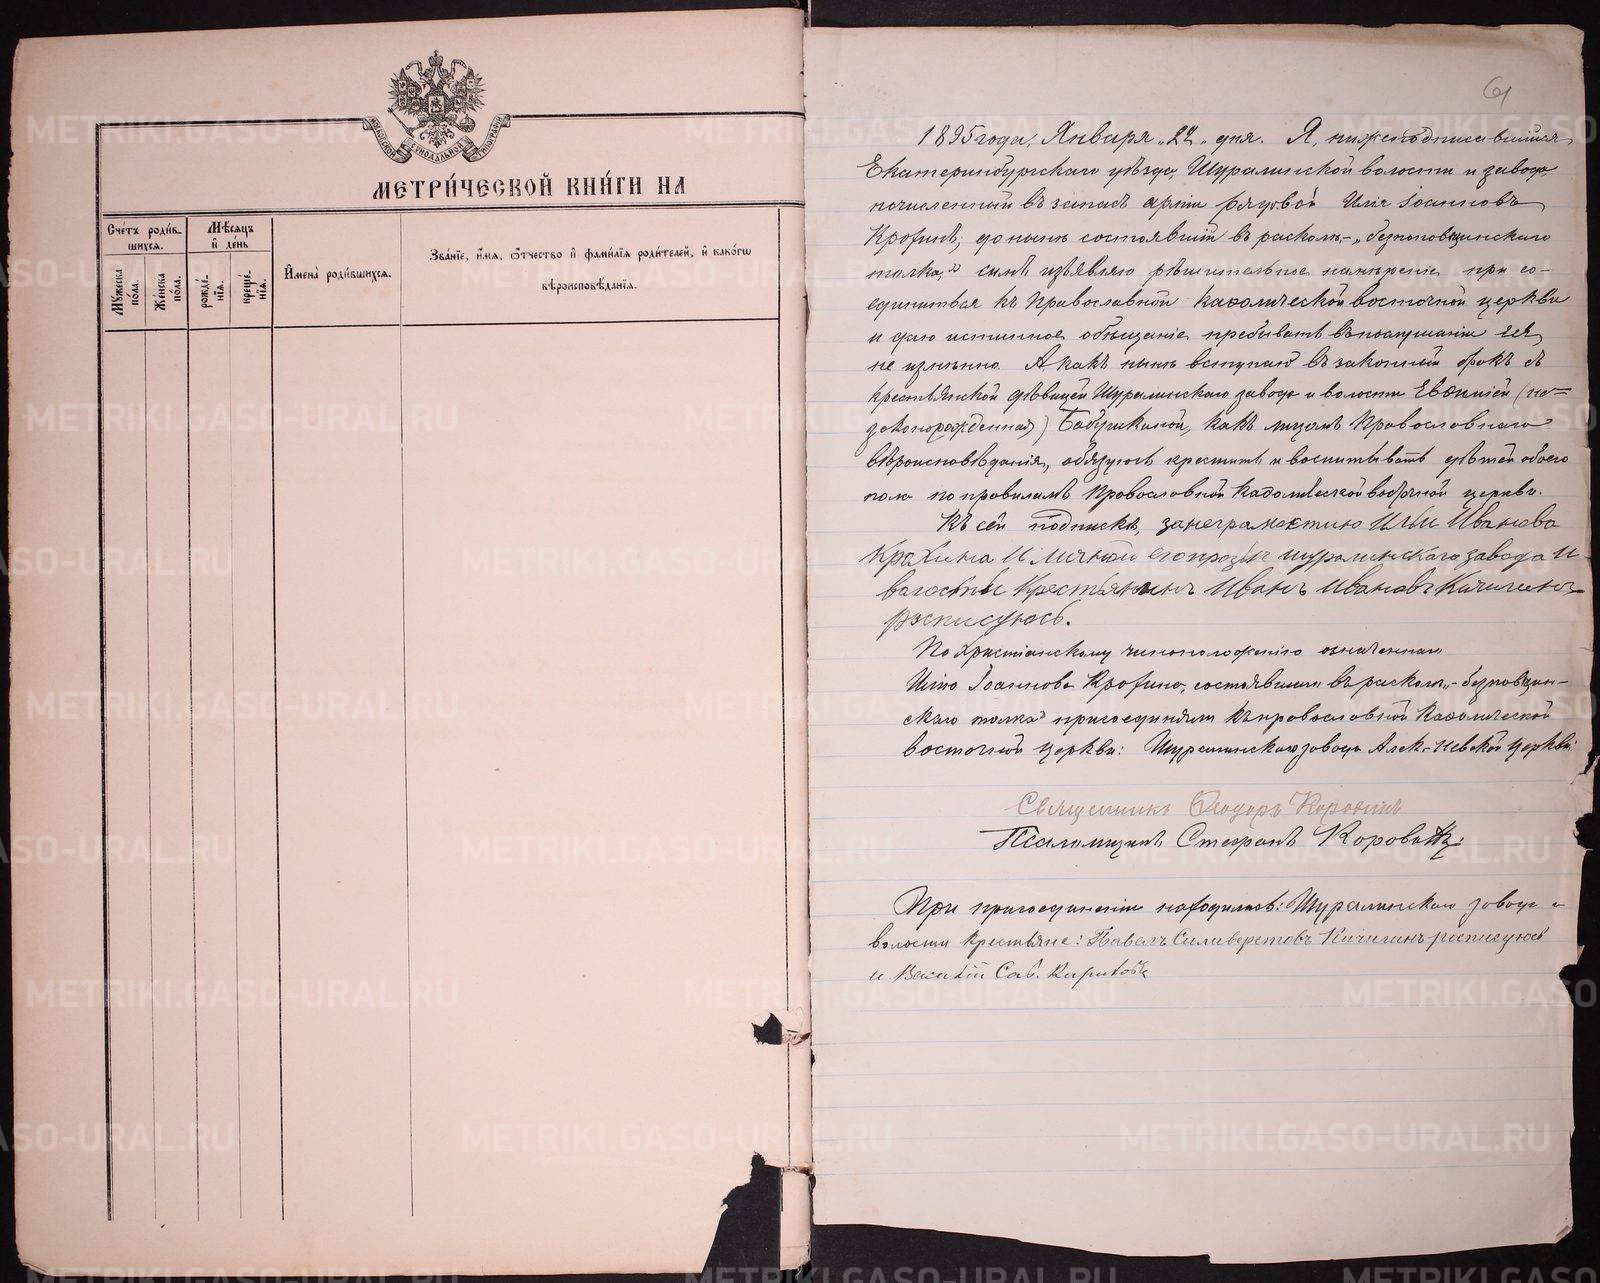 МЕТРИ́ЧЕСКОЙ КНИ́ГИ НА
Сче́тъ роди́в-
шихся.
Мꙋ́жеска по́ла.
Же́нска по́ла.
Мѣ́сяцъ
и҆ де́нь
рожде́-
нїѧ.
креще́-
нїѧ.
И҆мена̀ роди́вшихсѧ.
Зва́нїе, и҆́мѧ, ѻ҆́тчество и҆ фами́лїѧ роди́телей, и҆ како́гѡ
вѣроисповѣ́данїѧ.
61
1895 года, Января „22„ дня. Я, нижеподписавшийся,
Екатеринбургскаго уѣзда, Шуралинской волости и завода,
исчисленный въ запасъ арміи рядовой Илія Іоанновъ
Крохинъ, до нынѣ состоявшій въ расколѣ – „безпоповщинскаго
толка," симъ изъявляю рѣшительное намѣреніе при со-
единиться къ Православной Каѳолической восточной церкви
и даю истинное обѣщаніе пребывать въ послушаніи ея,
не измѣнно. А какъ нынѣ вступаю въ законный бракъ съ
крестьянской дѣвицей Шуралинскаго завода и волости Евфиміей (не-
законорожденная) Бабушкиной, какъ лицомъ Православнаго
вѣроисповѣданія, обязуюсь крестить и воспитывать дѣтей обоего
пола по правиламъ Православной Каѳолической восточной церкви.
Къ сей подпискѣ, занеграмотностію Ильи Иванова
Крохина и личной его прозбѣ шуралинскаго завода и
валости крестьянинъ Иванъ Ивановъ Кичигинъ
росписуюсь.
По Христіанскому чиноположенію означеннаго
Илію Іоаннова Крохина, состоявшаго въ расколѣ, – безповщин-
скаго толка" присоединили къ православной Каѳолической
восточной церкви: Шуралинскаго завода Алек-Невской церкви
Священникъ Ѳеодоръ Коровинъ
Псаломщикъ Стефанъ
При присоединеніи находились: Шуралинскаго завода и
волости крестьяне: Павелъ Силиверстовъ Кичигинъ росписуюсь
и Василій Сав. Кириловъ